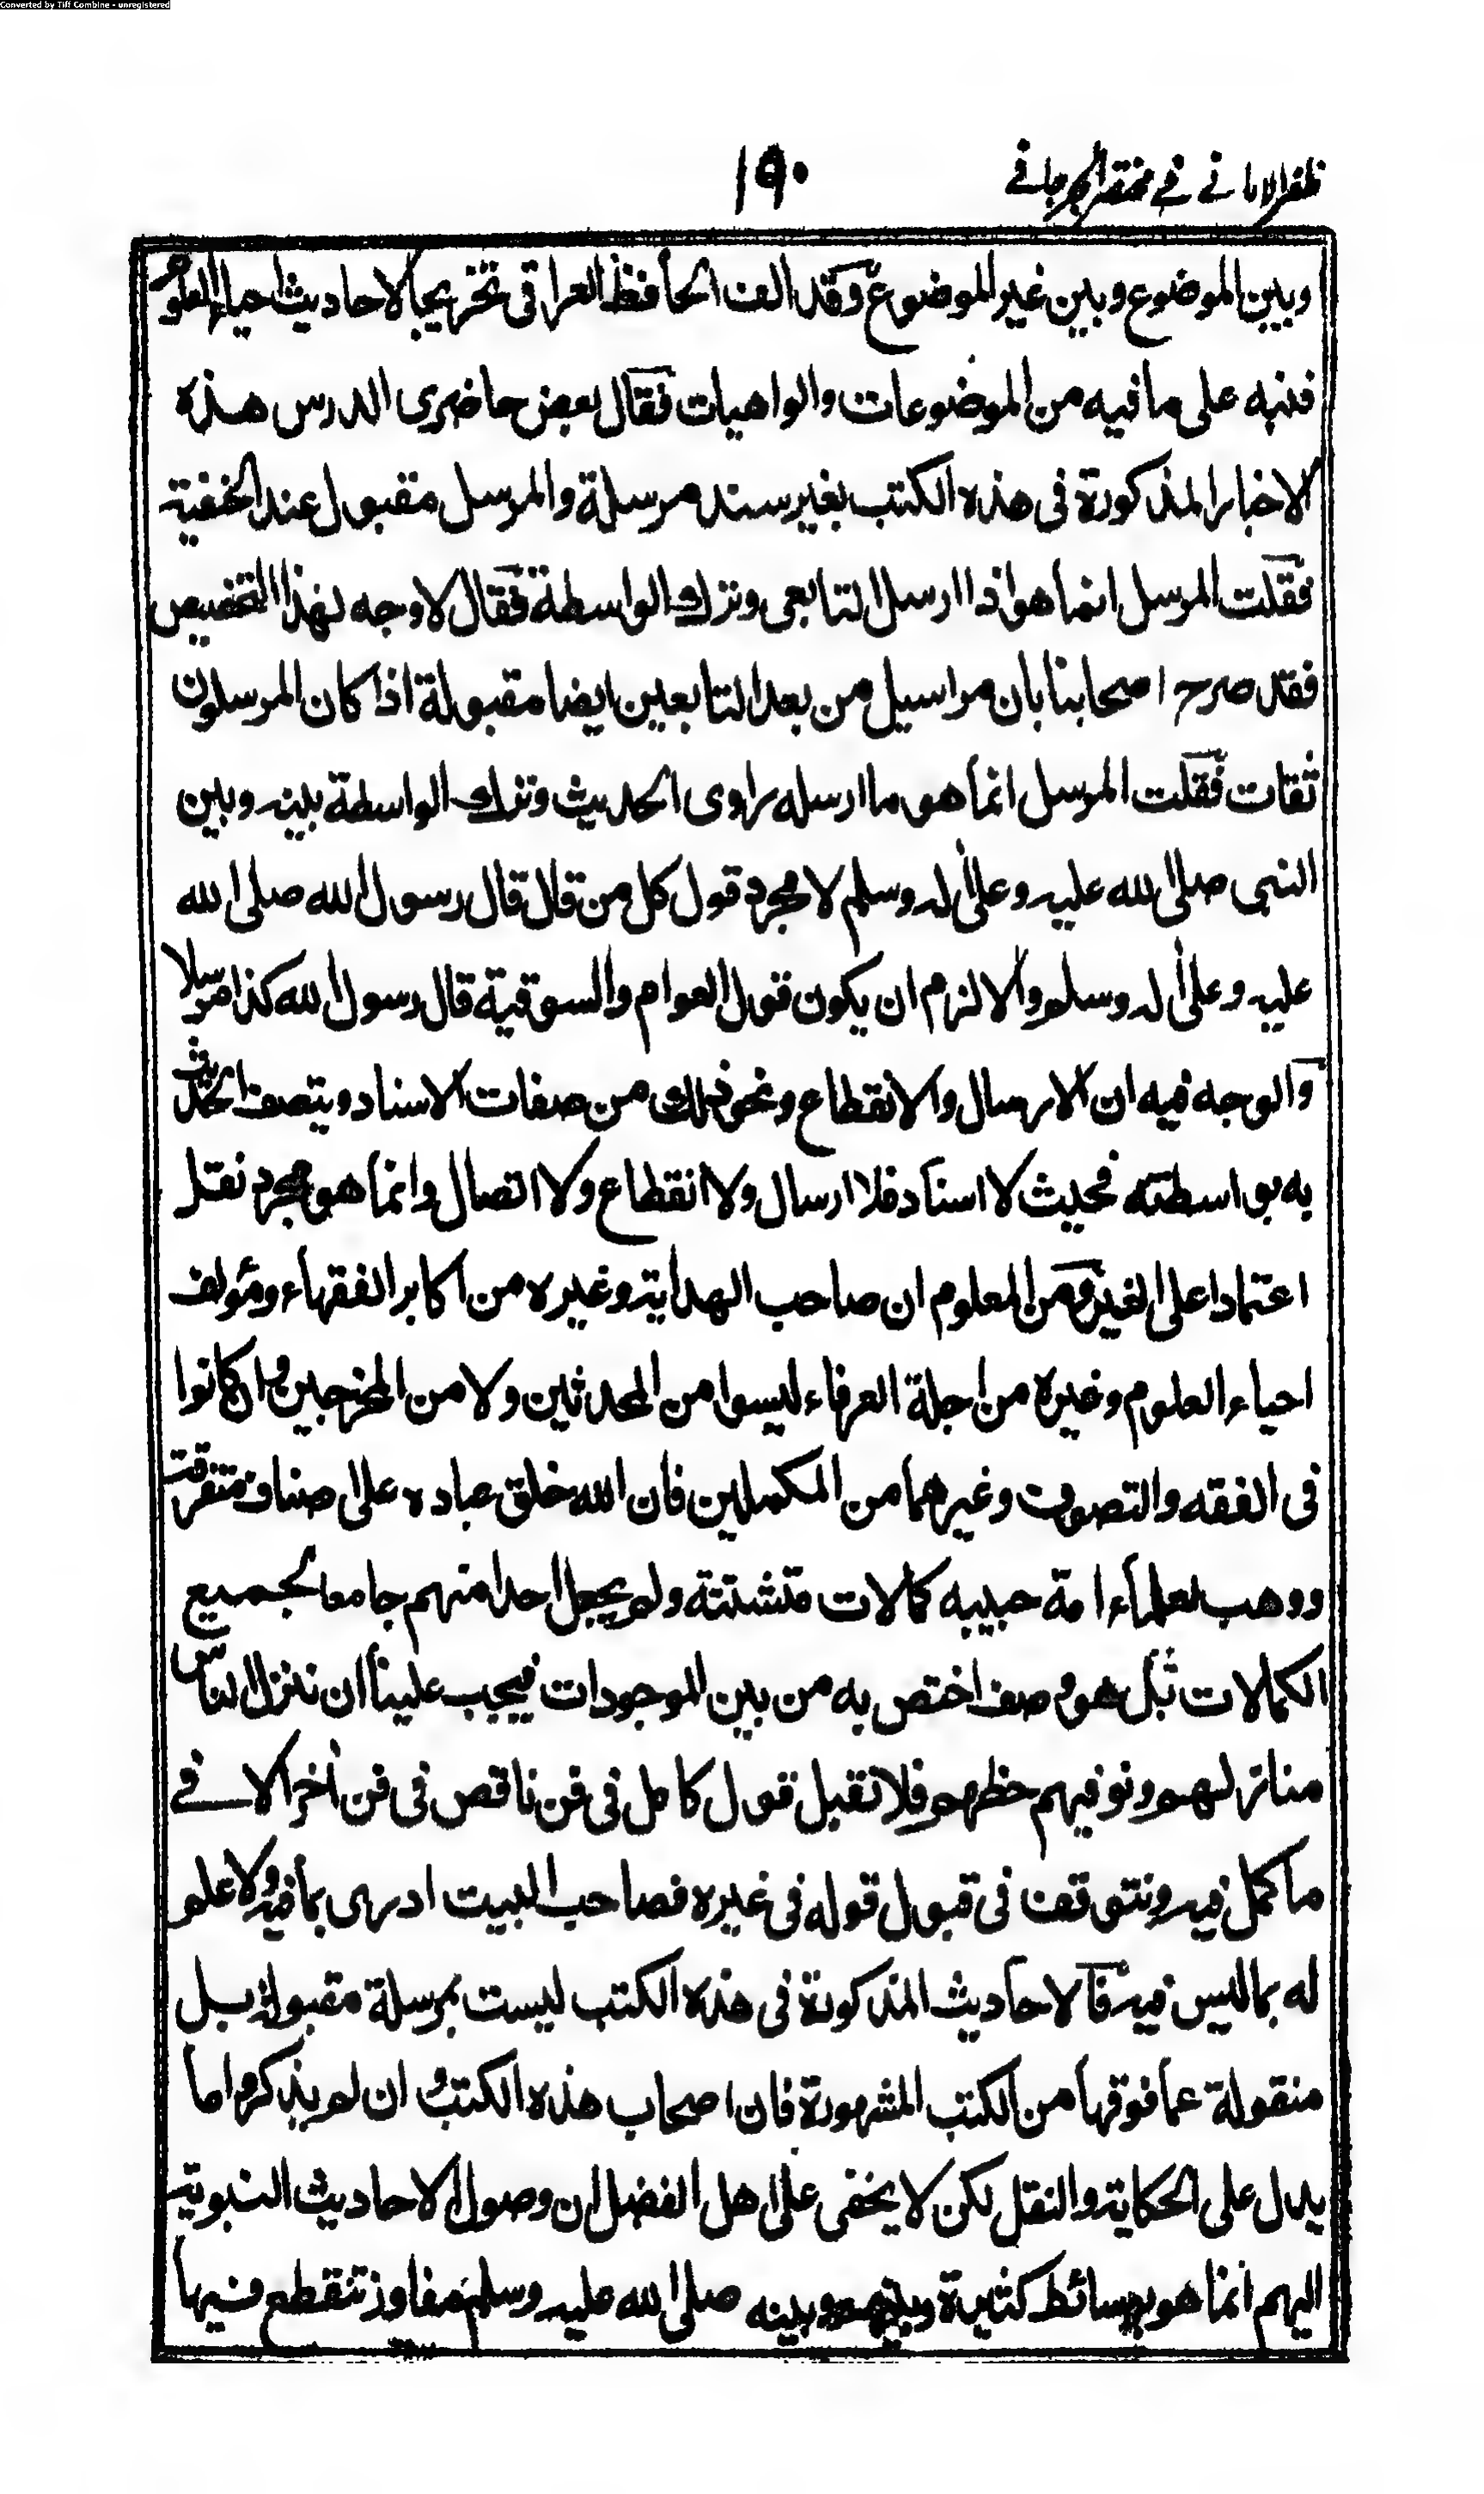 Converted by Tiff Combine - unregistered
ظفر الامانے فے مختصر الجرجانے
١٩٠
وبين الموضوع وبين غير الموضوع وقد الف الحافظ العراقى تخريجا لاحاديث احياء العلوم
فنبه على ما فيه من الموضوعات والواهيات فقال بعض حاضرى الدرس هذه
الاخبار المذكورة فى هذه الكتب بغير سند مرسلة والمرسل مقبول عند الحنفية
فقلت المرسل انما هو اذا ارسل التابعى وترك الواسطة فقال لا وجه لهذا التخصيص
فقد صرح اصحابنا بان مراسيل من بعد التابعين ايضا مقبولة اذا كان المرسلون
ثقات فقلت المرسل انما هو ما ارسله راوى الحديث وترك الواسطة بينه وبين
النبى صلى الله عليه وعلى اله وسلم لا مجرد قول كل من قال قال رسول الله صلى الله
عليه وعلى اله وسلم والا لزم ان يكون قول العوام والسوقية قال رسول الله كذا مرسلا
والوجه فيه ان الارسال والانقطاع ونحو ذلك من صفات الاسناد ويتصف الحديث
به بواسطته فحيث لا اسناد فلا ارسال ولا انقطاع ولا اتصال وانما هو مجرد نقل
اعتمادا على الغير ومن المعلوم ان صاحب الهداية وغيره من اكابر الفقهاء ومؤلف
احياء العلوم وغيره من اجلة العرفاء ليسوا من المحدثين ولا من المخرجين وان كانوا
فى الفقه والتصوف وغيرهما من المكملين فان الله خلق عباده على اصناف متفرقة
ووهب لعلماء امة حبيبه كمالات متشتتة ولم يجعل احدا منهم جامعا لجميع
الكمالات بل هو وصف اختص به من بين الموجودات فيجب علينا ان ننزل الناس
منازلهم ونوفيهم حظهم فلا نقبل قول كامل فى فن ناقص فى فن اخر الا فے
ما كمل فيه ونتوقف فى قبول قوله فى غيره فصاحب البيت ادرى بما فيه ولا علم
له بما ليس فيه فالاحاديث المذكورة فى هذه الكتب ليست بمرسلة مقبولة بل
منقولة عما فوقها من الكتب المشهورة فان اصحاب هذه الكتب وان لم يذكروا ما
يدل على الحكاية والنقل لكن لا يخفى على اهل الفضل ان وصول الاحاديث النبوية
اليهم انما هو بوسائط كثيرة وبينهم وبينه صلى الله عليه وسلم مفاوز تنقطع فيها